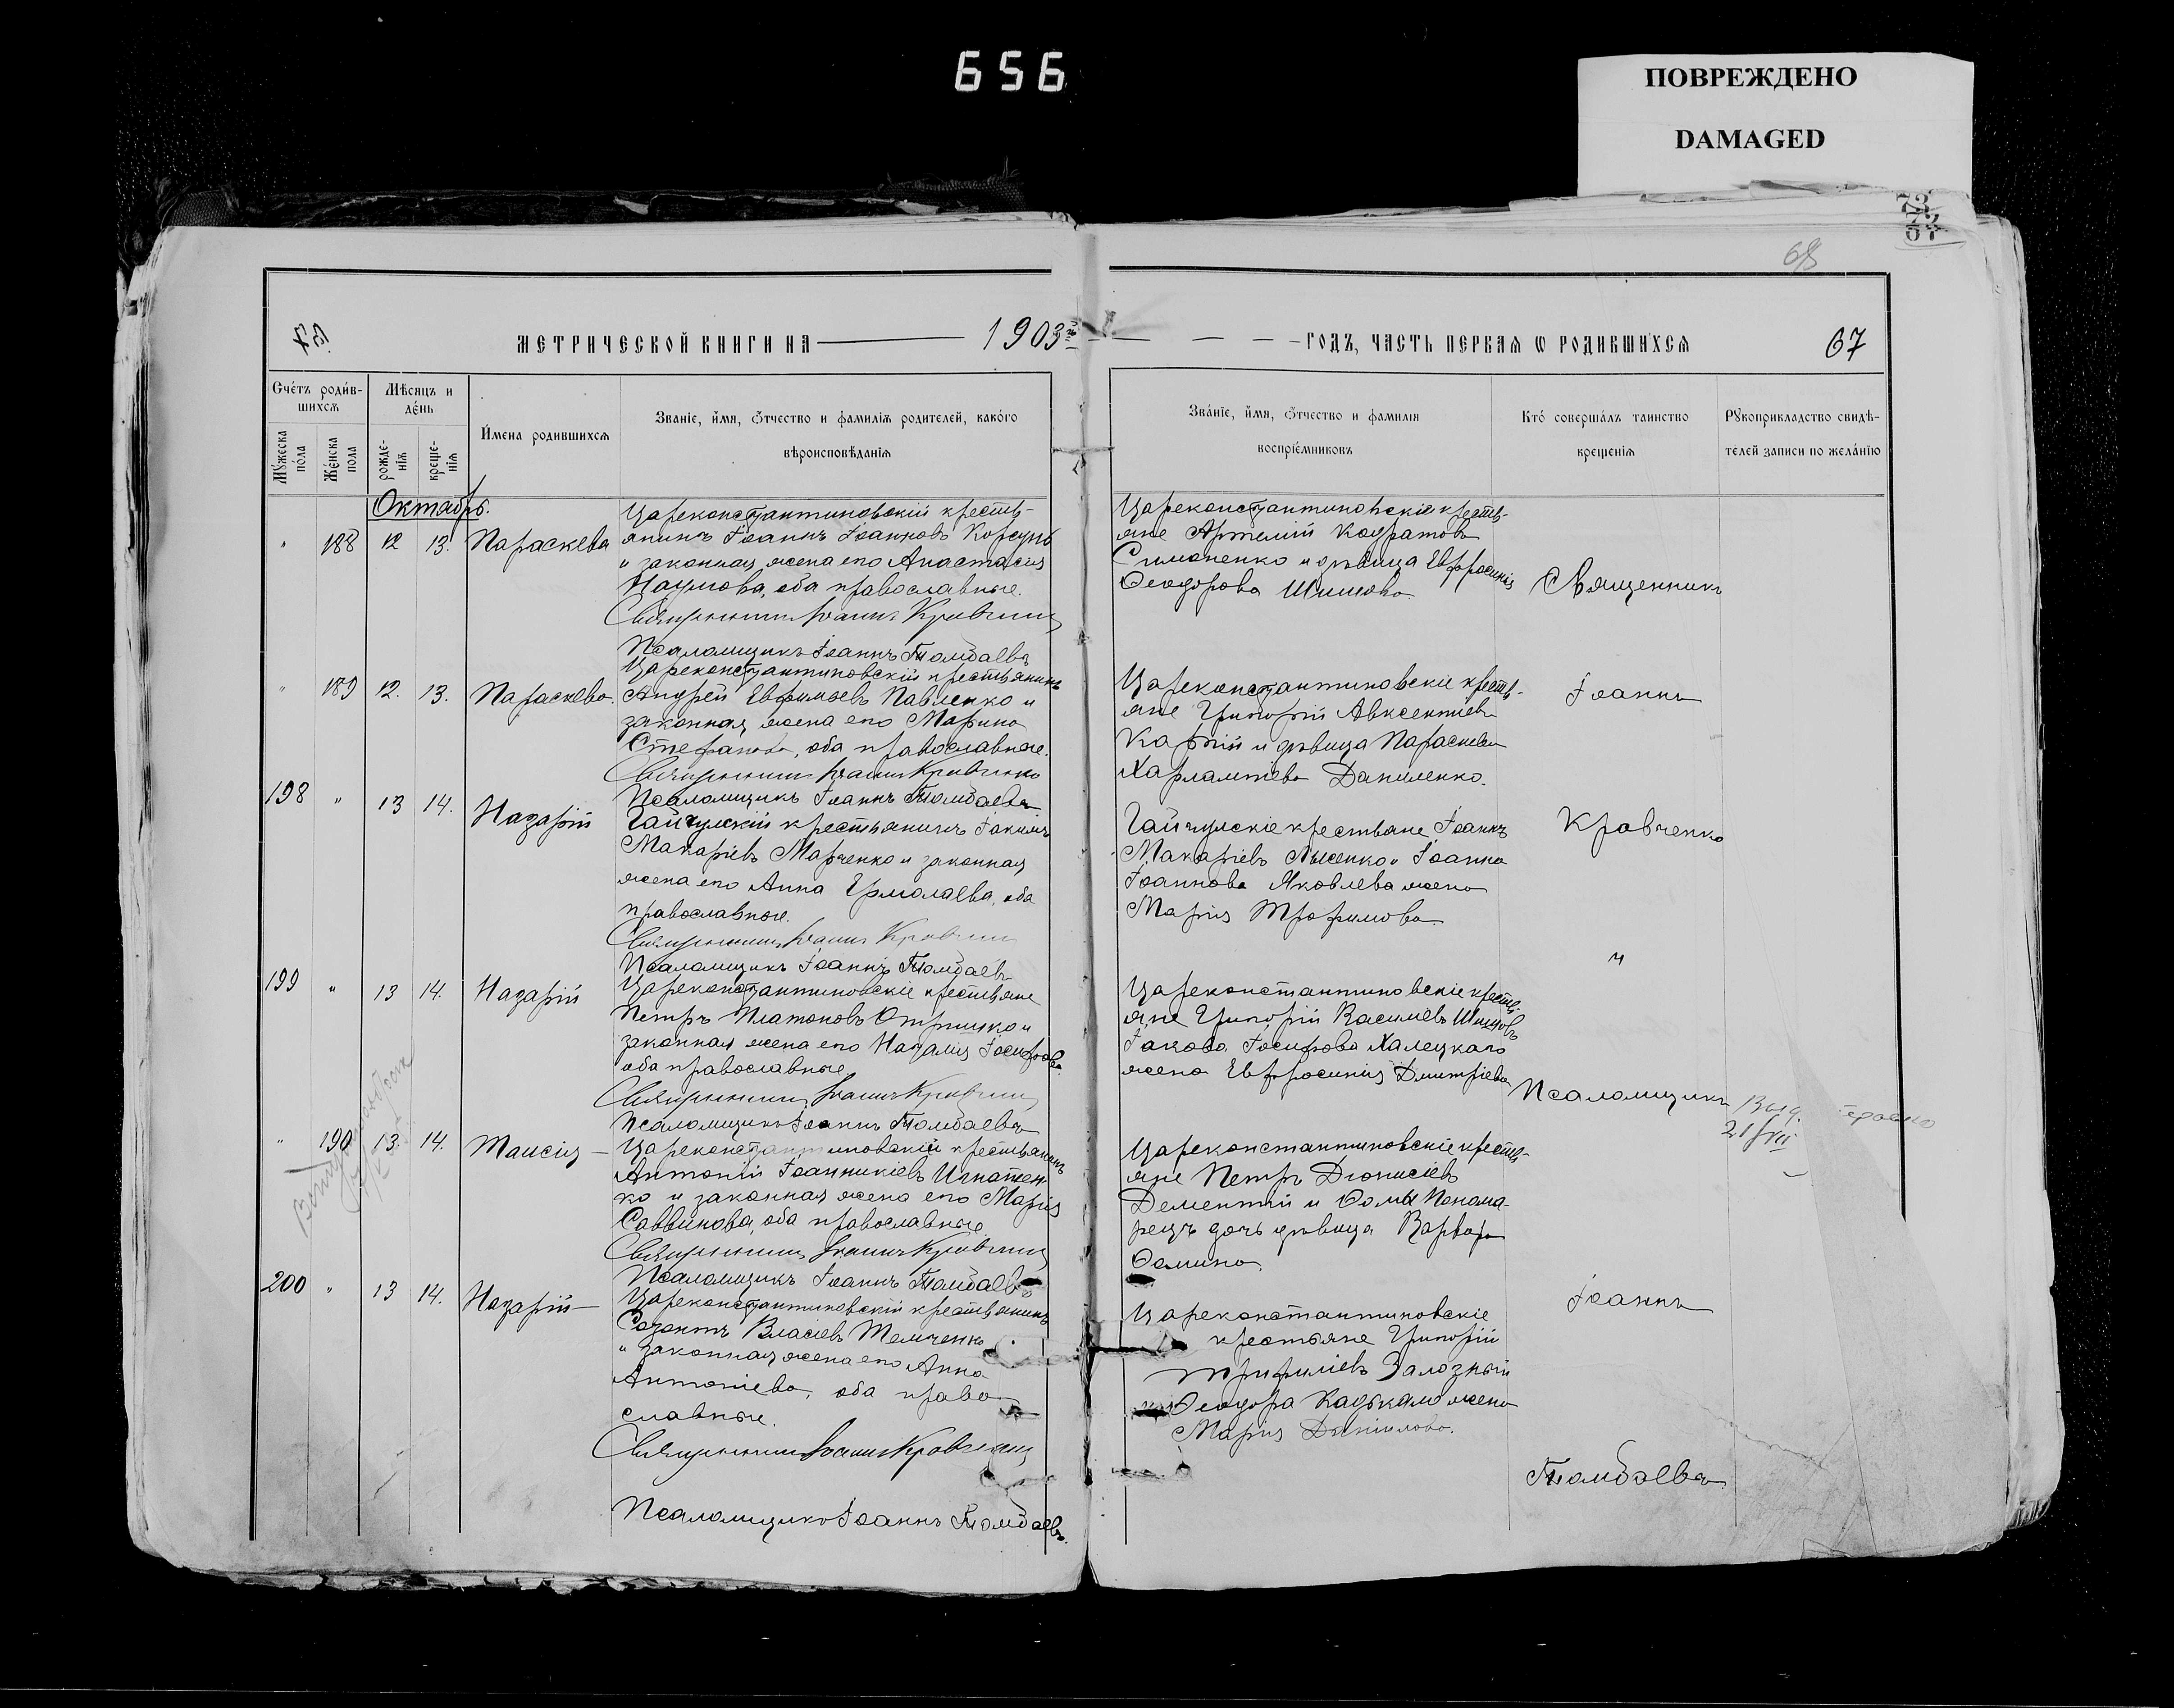 656
ПОВРЕЖДЕНО
DAMAGED
68
67
МЕТРИЧЕСКОЙ КНИГИ НА 1903й ГОДЪ, ЧАСТЬ ПЕРВАЯ Ѡ РОДИВШИХСЯ
67
Счétъ роди́в-
шихся
Мѣсяцъ и
де́нь
Мꙋжеска
по́ла
Же́нска
пола
рожде-
нїя
креще-
нїя
И́мена родившихся
Званїе, и́мя, ѻ҆тчество и фамилїя родителей, како́го
вѣроисповѣданїя
Зва́нїе, и́мя, ѻ҆тчество и фамилїя
воспрїе́мниковъ
Кто́ соверша́лъ таинство
крещенїя
Рꙋкоприкладство свидѣ-
телей записи по жела́нїю
Октябрь.
" 188 12 13. Параскева
Цареконстантиновскій кресть-
янинъ Іоаннъ Іоанновъ Корсунь
и законная жена его Анастасія
Наумова, оба православные.
Священникъ Іоаннъ Кравченко
Псаломщикъ Іоаннъ Томбаевъ
Цареконстантиновскіе кресть-
яне Артемій Кодратовъ
Симоненко и дѣвица Евфросинія
Ѳеодорова Шишова.
Священникъ
" 189 12. 13. Параскева.
Цареконстантиновскій крестьянинъ
Андрей Евфимьевъ Павленко и
законная жена его Марина
Стефанова, оба православные.
Священникъ Іоаннъ Кравченко
Псаломщикъ Іоаннъ Томбаевъ
Цареконстантиновскіе кресть-
яне Григорій Авксентіевъ
Капрій и дѣвица Параскева
Харлампіева Даниленко.
Іоаннъ
198 " 13 14. Назарій
Гайчулскій крестьянинъ Іакимъ
Макаріевъ Марченко и законная
жена его Анна Ермолаева, оба
православные.
Священникъ Іоаннъ Кравченко
Псаломщикъ Іоаннъ Томбаевъ
Гайчулскіе крестьяне Іоаннъ
Макаріевъ Лысенко и Іоанна
Іоаннова Яковлева жена
Марія Трофимова.
Кравченко
и
199 " 13 14. Назарій
Цареконстантиновскіе крестьяне
Петръ Платоновъ Отришко и
законная жена его Наталія Іосифова
оба православные
Священникъ Іоаннъ Кравченко
Псаломщикъ Іоаннъ Томбаевъ
Цареконстантиновскіе кресть-
яне Григорій Василіевъ Шишовъ
Іакова Іосифова Халецкаго
жена Евфросинія Димитріева
Псаломщикъ
" 190 13. 14. Таисія
Цареконстантиновскій крестьянинъ
Антоній Іоанникіевъ Игнатен-
ко и законная жена его Марія
Саввинова, оба православные
Священникъ Іоаннъ Кравченко
Псаломщикъ Іоаннъ Томбаевъ
Цареконстантиновскіе кресть-
яне Петръ Діонисіевъ
Дементій и Ѳомы Понома-
рецъ дочь дѣвица Варвара
Ѳомина.
21/VII
200 " 13 14. Назарій
Цареконстантиновскій крестьянинъ
Созонтъ Власіевъ Темченко
и законная жена его Анна
Антоніева, оба право-
славные.
Священникъ Іоаннъ Кравченко
Псаломщикъ Іоаннъ Томбаевъ.
Цареконстантиновскіе
крестьяне Григорій
Трифиліевъ Залозный
и Ѳеодора Кадькало жена
Марія Даніилова.
Іоаннъ
Томбаевъ